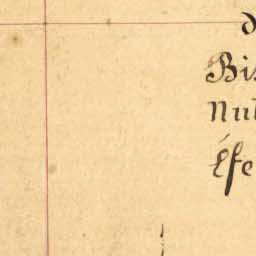 d
Bis
Nul
Éfe